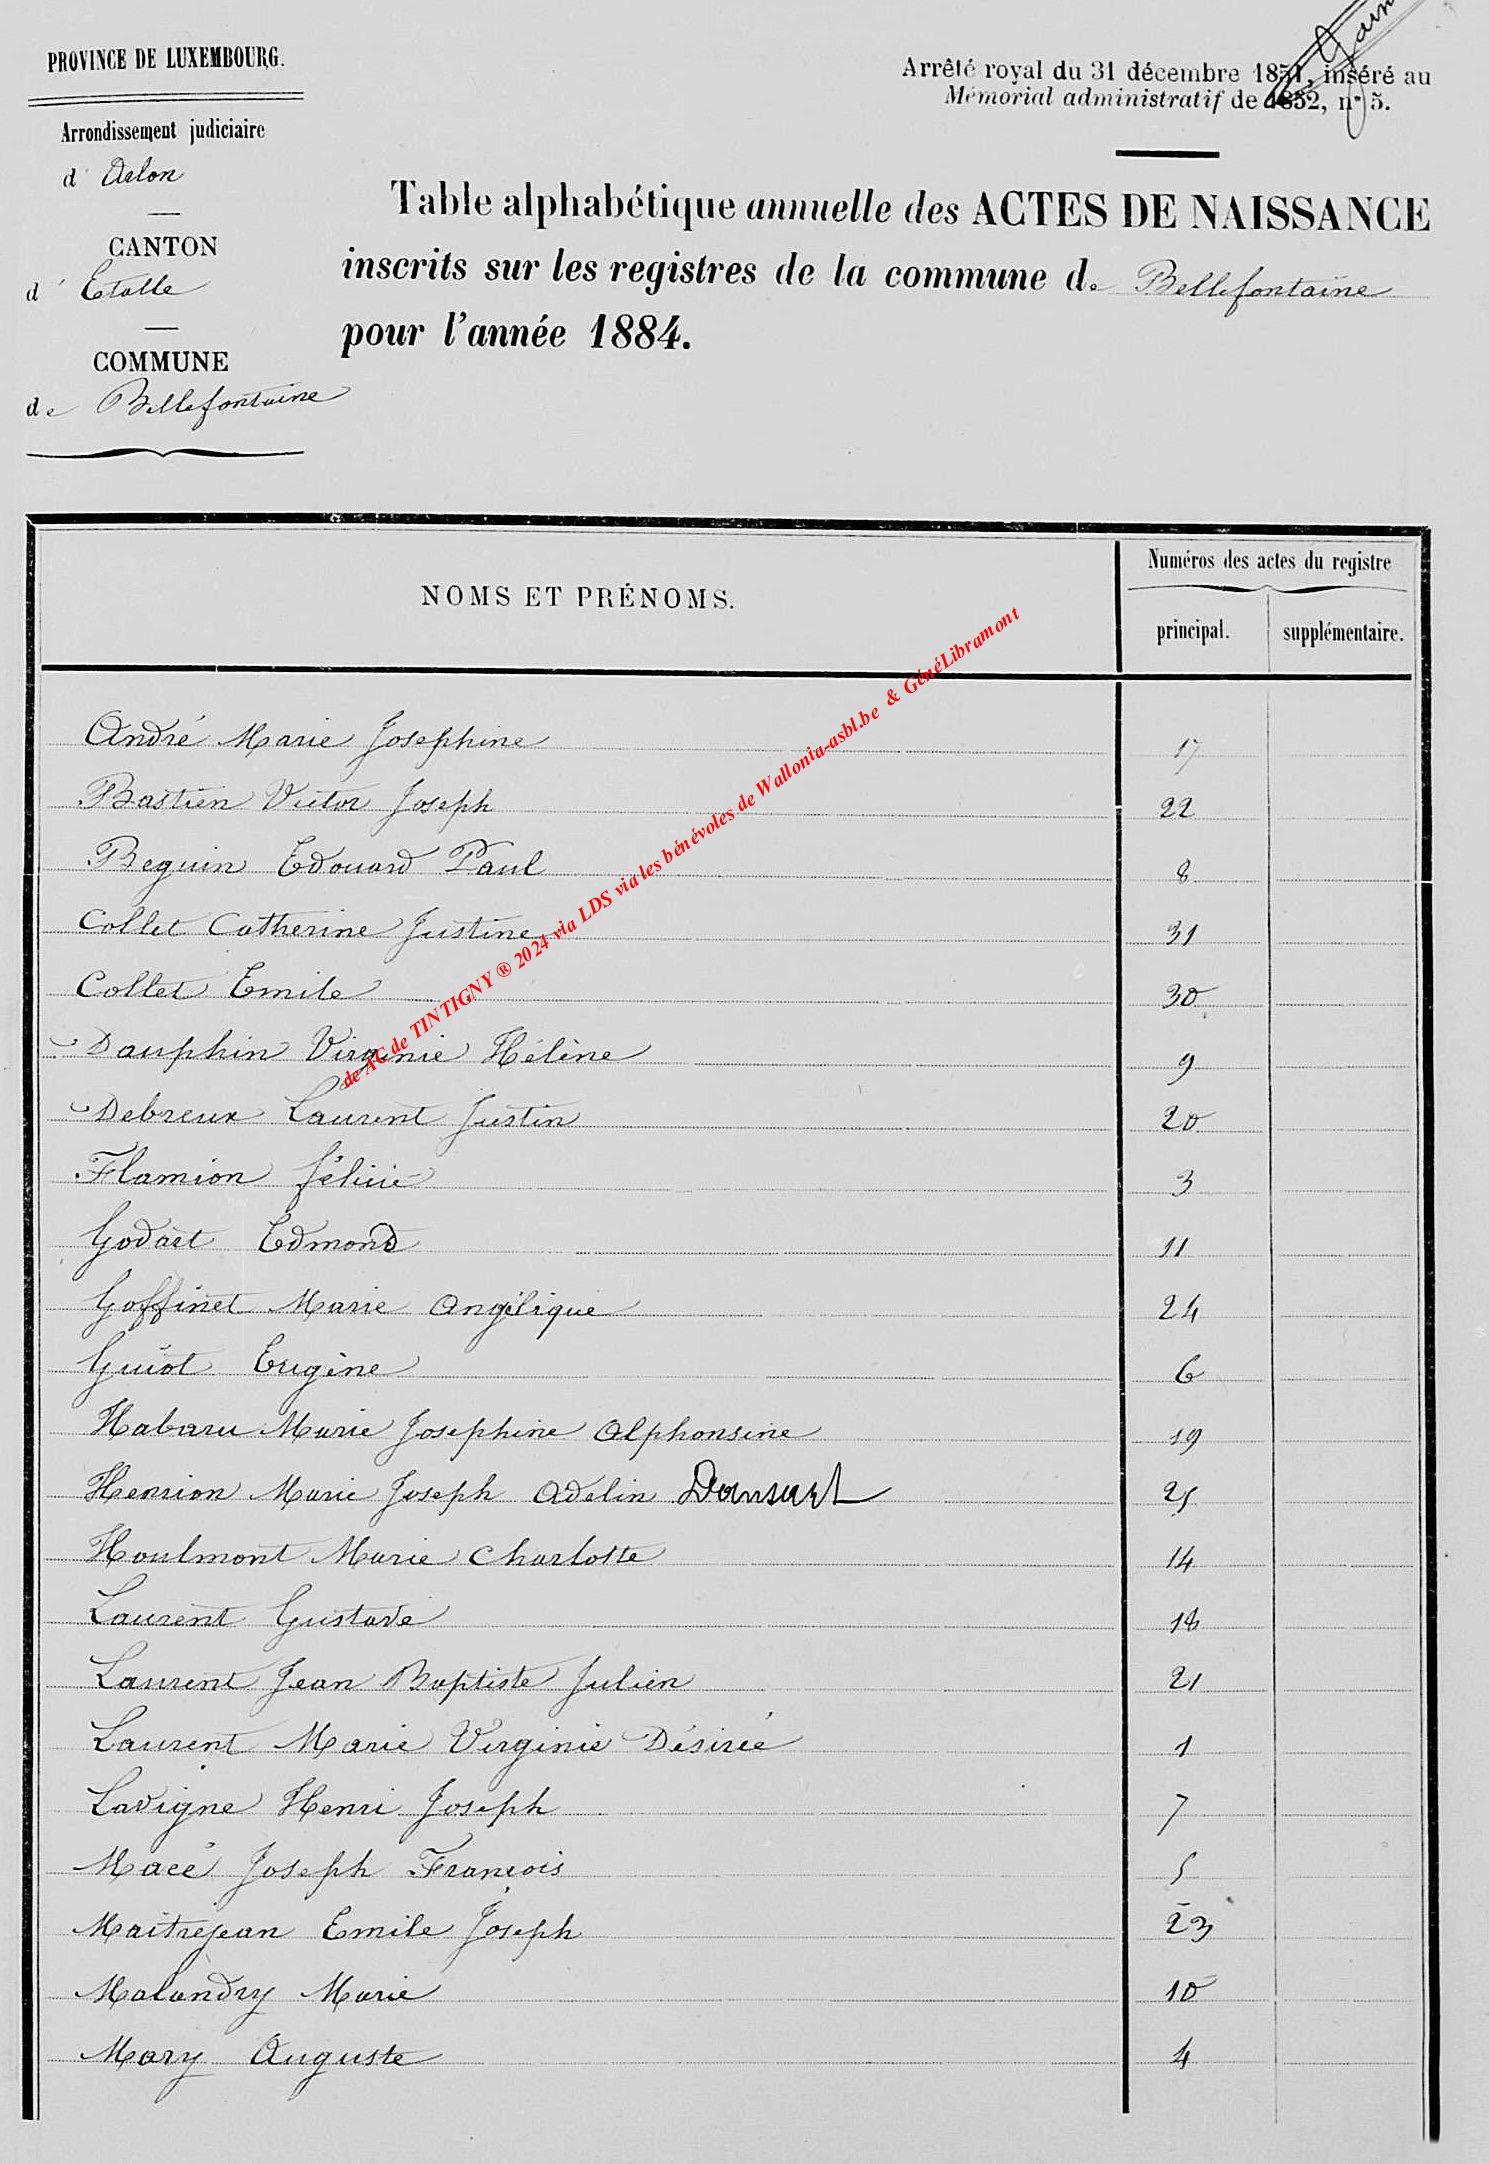 PROVINCE DE LUXEMBOURG.
Arrondissement judiciaire
d'Arlon
CANTON
d'Etalle
COMMUNE
de Bellefontaine
Arrêté royal du 31 décembre 1851, inséré au
Mémorial administratif de 1852, n° 5.
Table alphabétique annuelle des ACTES DE NAISSANCE
inscrits sur les registres de la commune de Bellefontaine
pour l'année 1884.
NOMS ET PRÉNOMS.
Numéros des actes du registre
principal. supplémentaire.
André Marie Josephine 17
Bastien Victor Joseph 22
Beguin Edouard Paul 8
Collet Catherine Justine 31
Collet Emile 30
Dauphin Virginie Hélène 9
Debreux Laurent Justin 20
Flamion Félicie 3
Godart Edmond 11
Goffinet Marie Angélique 24
Guiot Eugène 6
Habaru Marie Josephine Alphonsine 19
Henrion Marie Joseph Adelin Dansart 25
Houlmont Marie Charlotte 14
Laurent Gustave 18
Laurent Jean Baptiste Julien 21
Laurent Marie Virginie Désirée 1
Lavigne Henri Joseph 7
Macé Joseph François 5
Maitrejean Emile Joseph 23
Malandry Marie 10
Mary Auguste 4
de AC de TINTIGNY ® 2024 via LDS via les bénévoles de Wallonia-asbl.be & GénéLibramont